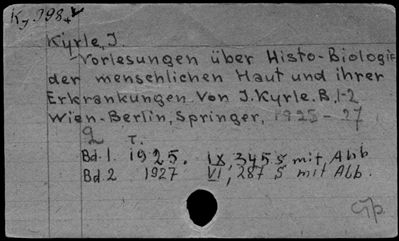 Ky 398
Kyrle, J.
Vorlesungen über Histo-Biologie
der menschlichen Haut und ihrer
Erkrankungen von J. Kyrle. B. 1-2
Wien-Berlin, Springer, 1925-27
2 T.
Bd. 1. 1925. IX, 345 S mit, Abb
Bd. 2 1927 VI, 287 S mit Abb.